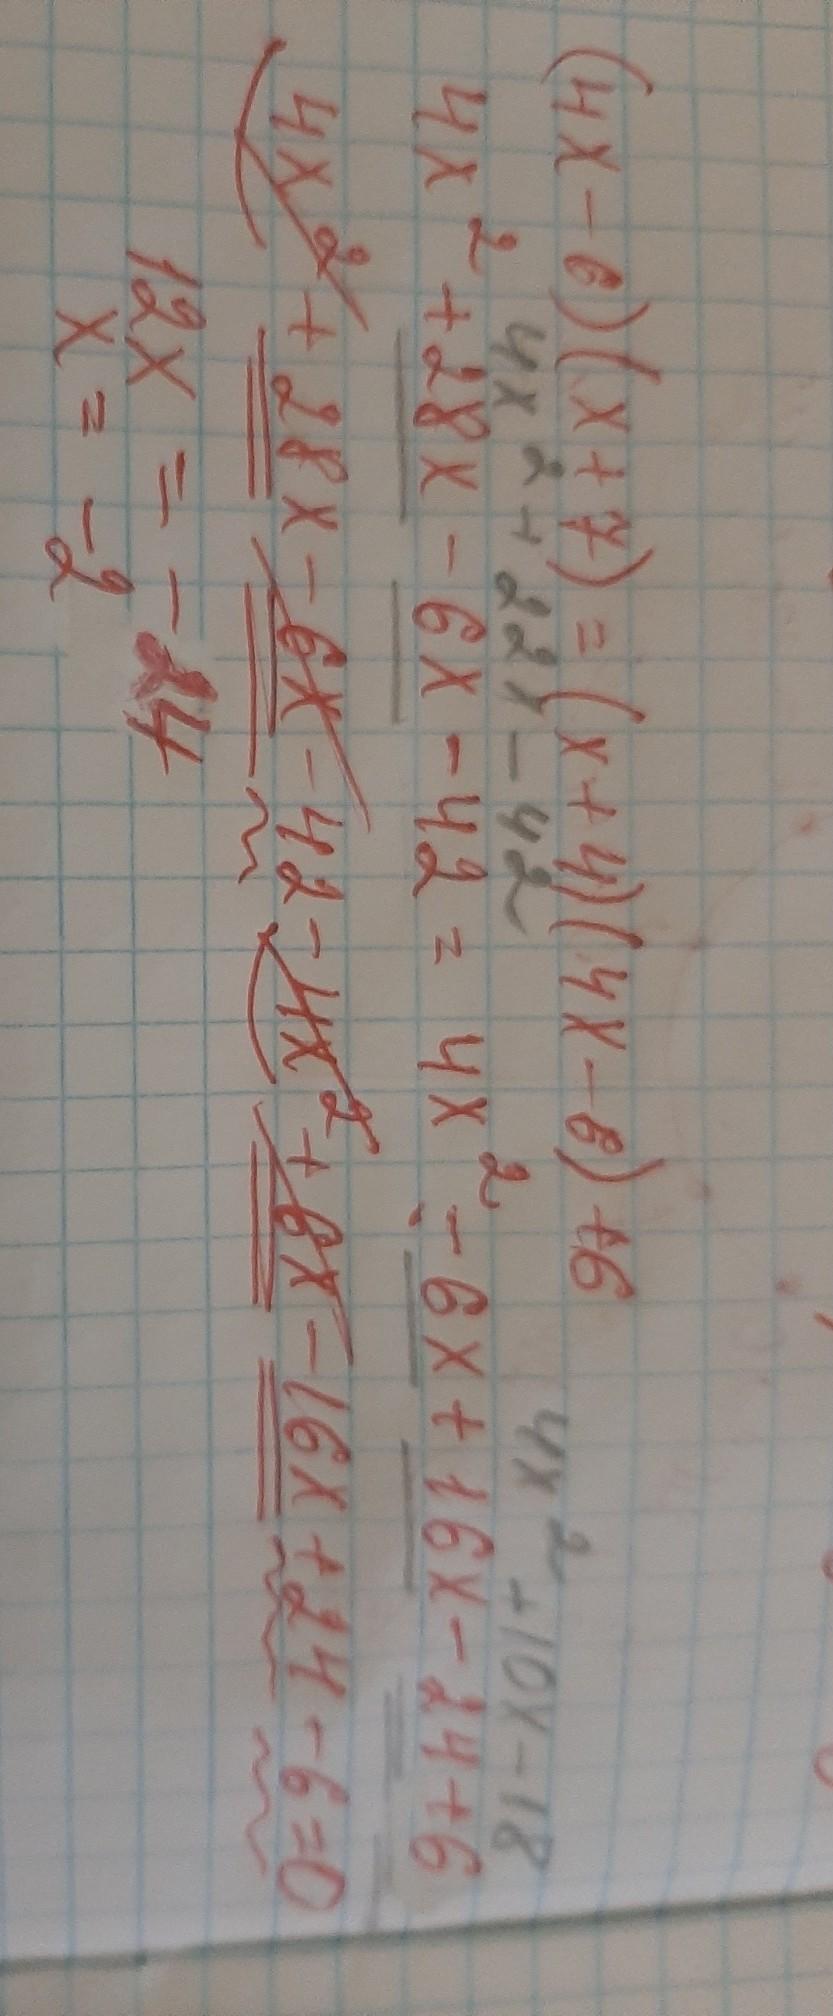 (4x-6)(x+7)=(x+4)(4x-6)+6
4x²+22x-42 4x²+10x-18
4x²+28x-6x-42=4x²-6x+16x-24+6
4x²+28x-6x-42-4x²+6x-16x+24-6=0
12x=-24
x=-2